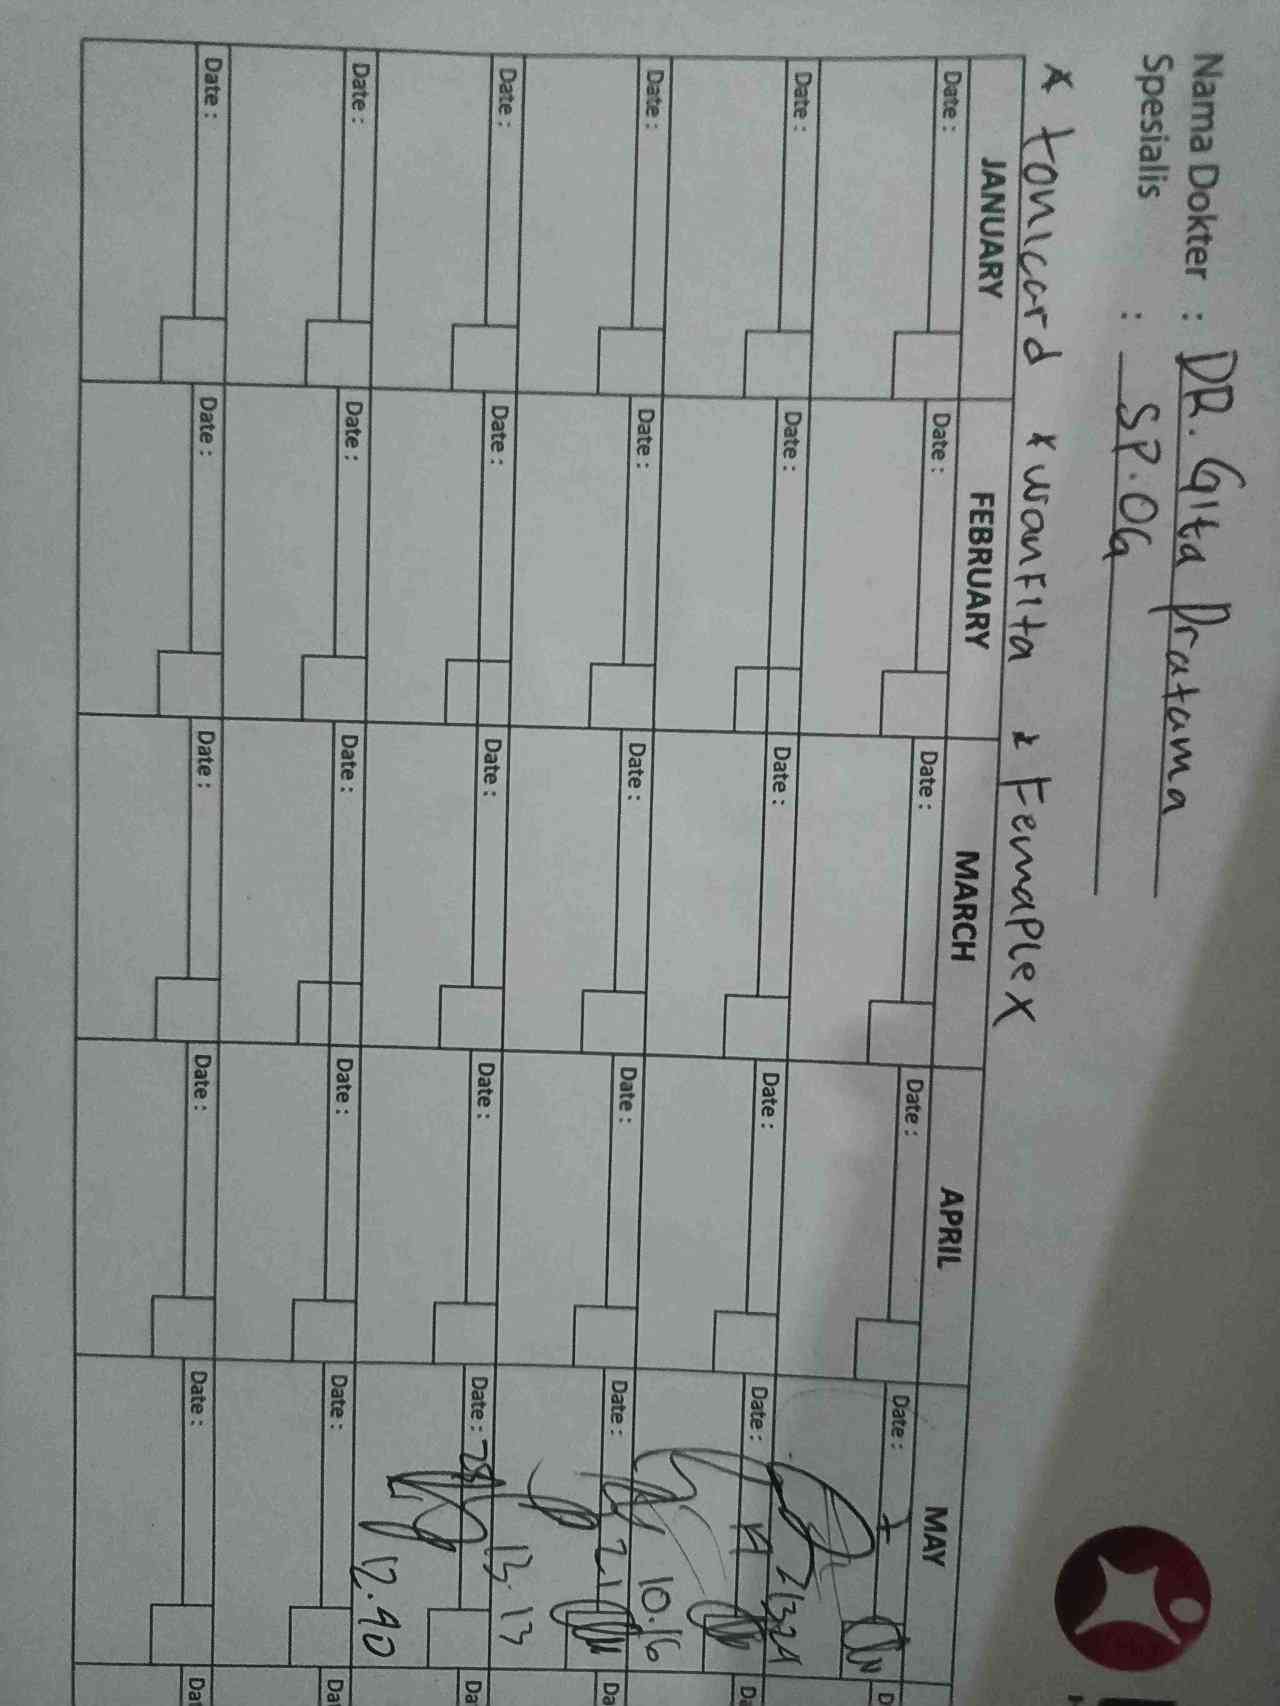 Nama Dokter : DR. Gita Pratama
Spesialis : SP.OG
* tonicard * wanfita * Femaplex
JANUARY FEBRUARY MARCH APRIL MAY
Date : Date : Date : Date : Date : 7
Date : Date : Date : Date : Date : 14
Date : Date : Date : Date : Date : 21
10.16
Date : Date : Date : Date : Date : 28
13.13
12.40
Date : Date : Date : Date : Date :
Date : Date : Date : Date : Date :